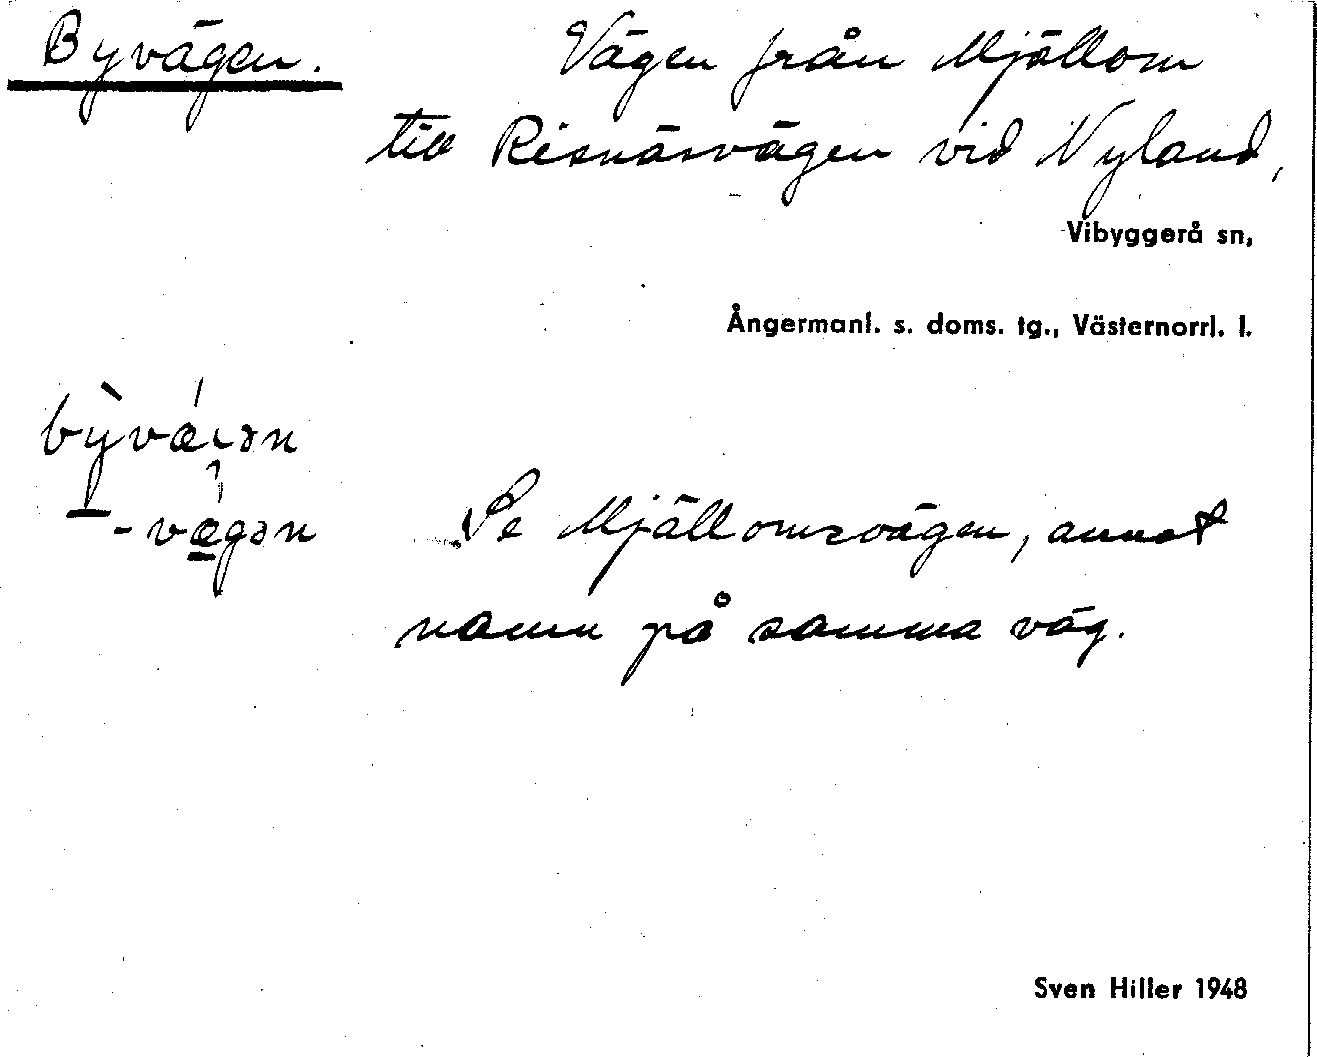 Byvägen. Vägen från Mjällom
till Risnäsvägen vid Nyland,
Vibyggerå sn,
Ångermanl. s. doms. tg., Västernorrl. l.
-vægən
Se Mjällomsvägen, annat
namn på samma väg.
Sven Hiller 1948